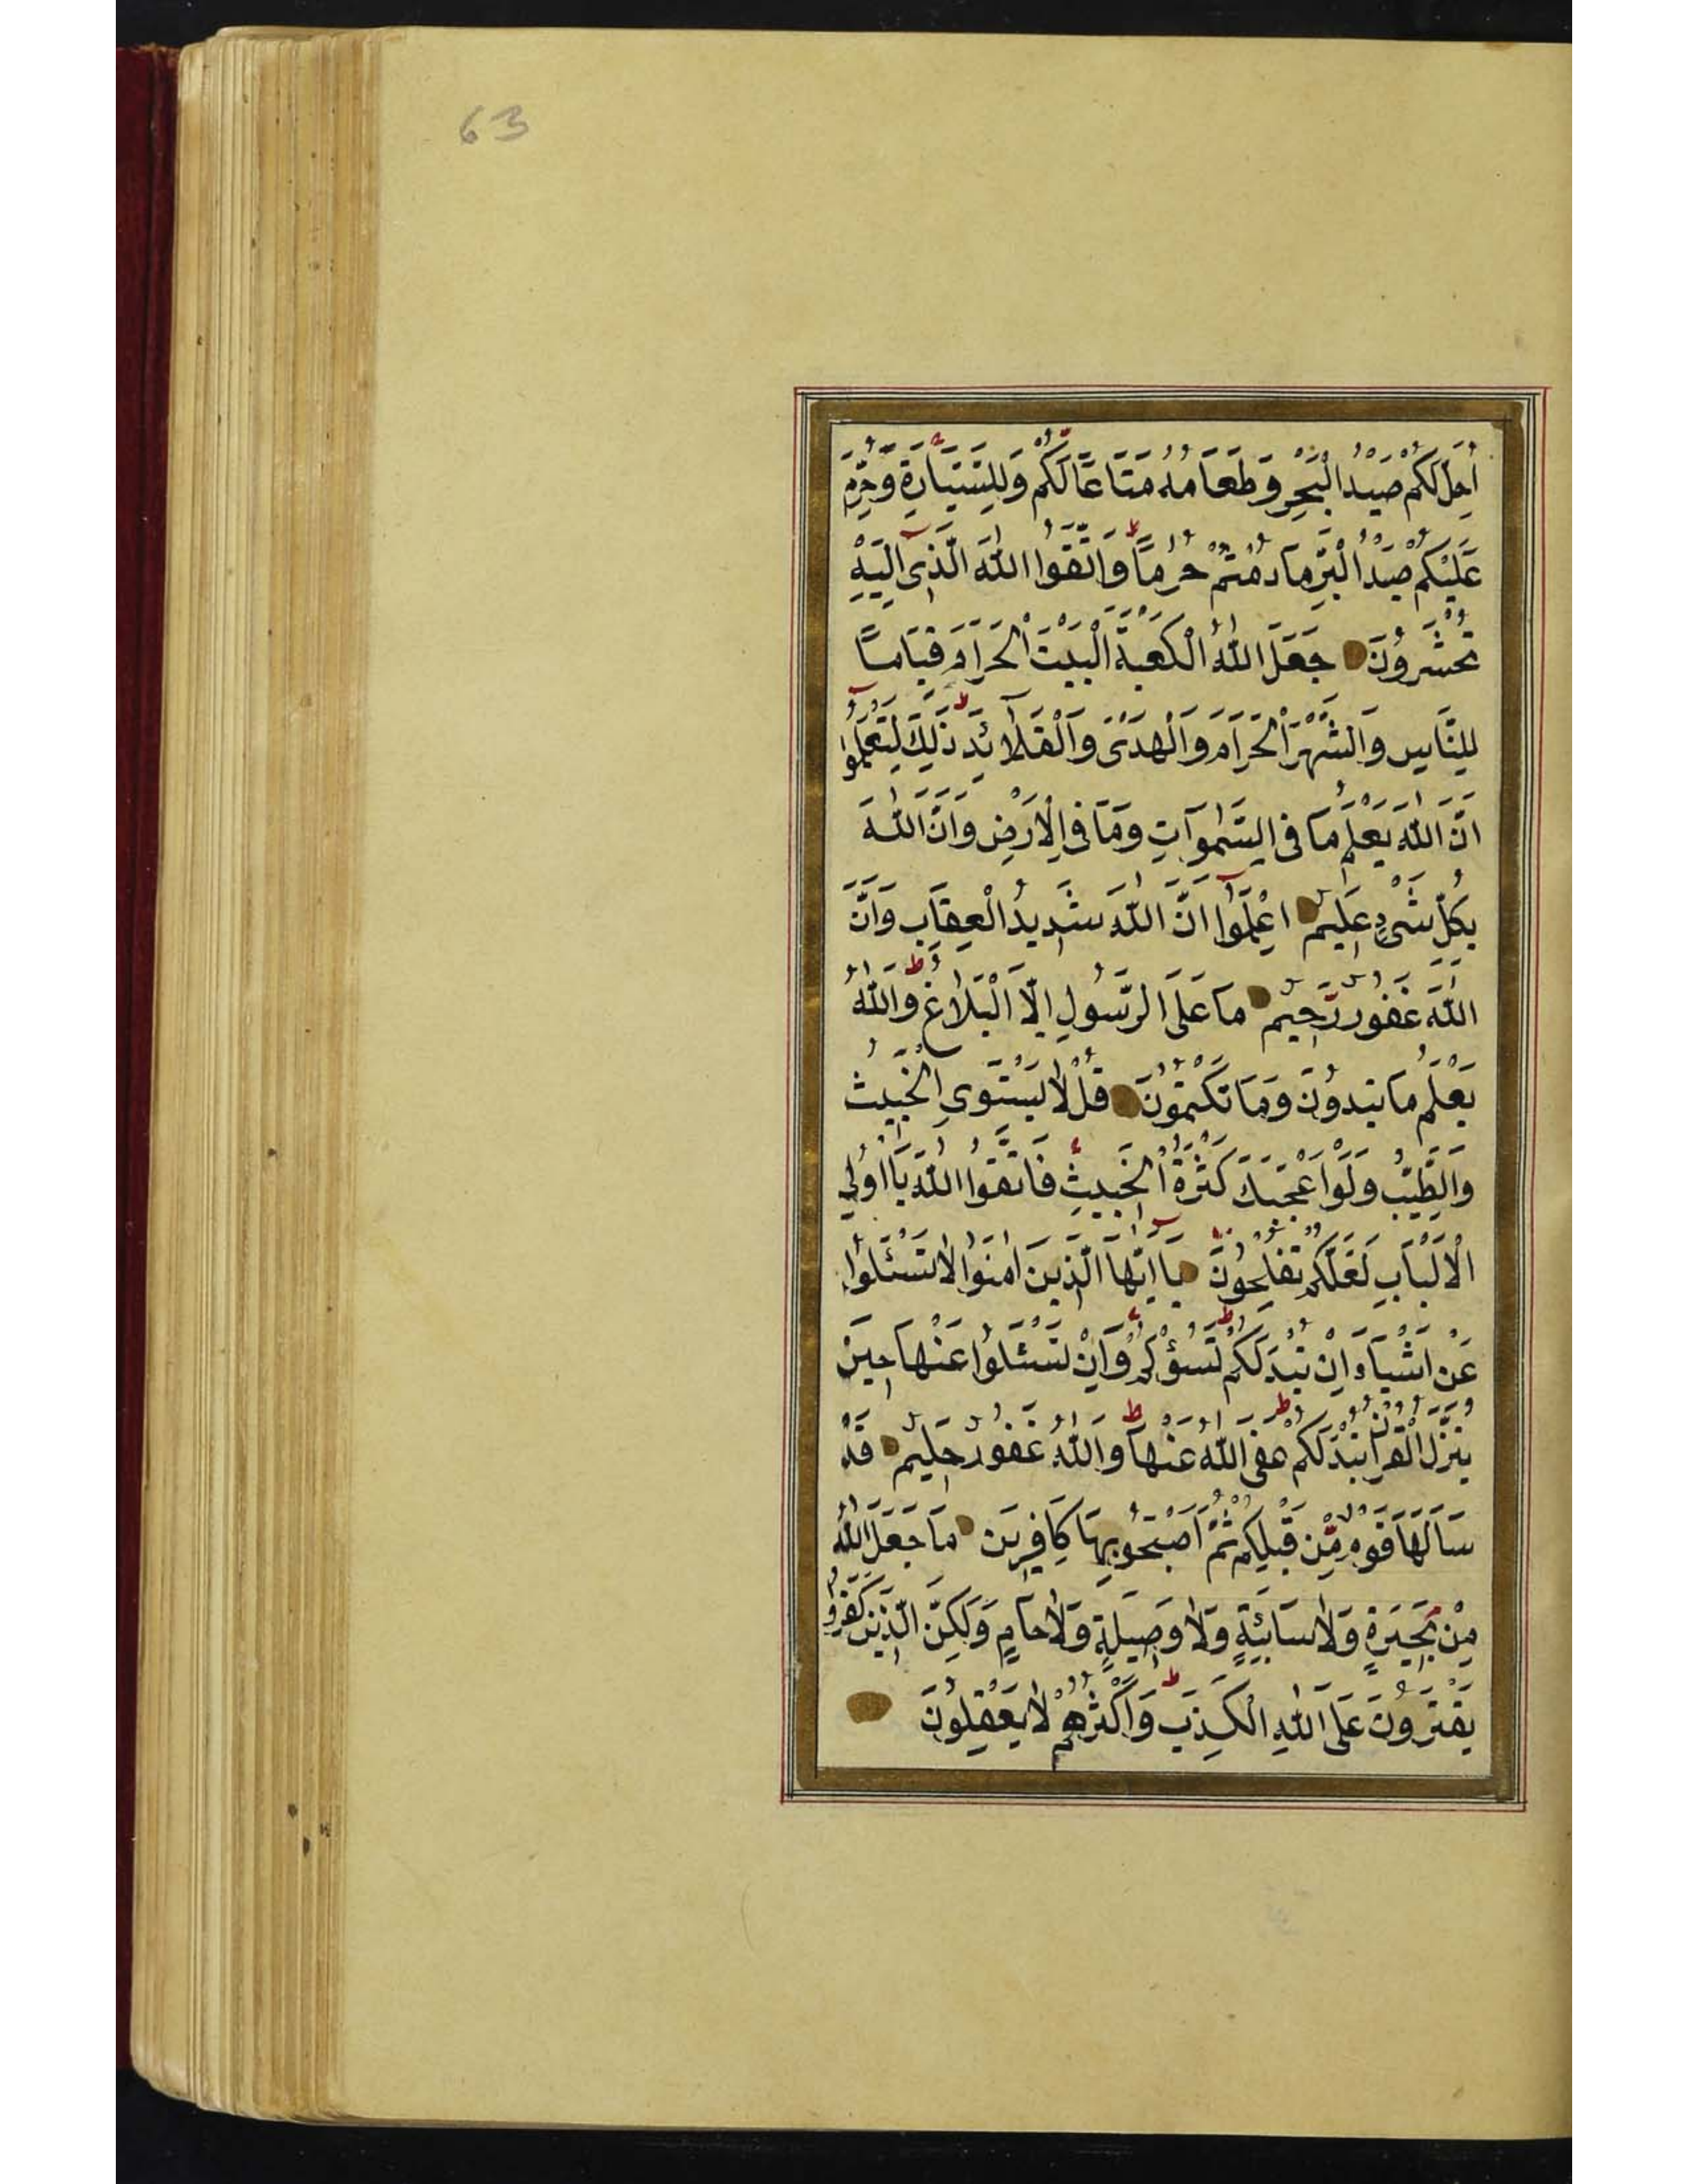 63
اُحِلَّ لَكُمْ صَيْدُ الْبَحْرِ وَطَعَامُهُ مَتَاعًا لَكُمْ وَلِلسَّيَّارَةِ وَحُرِّمَ
عَلَيْكُمْ صَيْدُ الْبَرِّ مَا دُمْتُمْ حُرُمًا وَاتَّقُوا اللّٰهَ الَّذِى اِلَيْهِ
تُحْشَرُونَ جَعَلَ اللّٰهُ الْكَعْبَةَ الْبَيْتَ الْحَرَامَ قِيَامًا
لِلنَّاسِ وَالشَّهْرَ الْحَرَامَ وَالْهَدْىَ وَالْقَلَائِدَ ذٰلِكَ لِتَعْلَمُوا
اَنَّ اللّٰهَ يَعْلَمُ مَا فِى السَّمٰوَاتِ وَمَا فِى الْاَرْضِ وَاَنَّ اللّٰهَ
بِكُلِّ شَىْءٍ عَلِيمٌ اِعْلَمُوا اَنَّ اللّٰهَ شَدِيدُ الْعِقَابِ وَاَنَّ
اللّٰهَ غَفُورٌ رَحِيمٌ مَا عَلَى الرَّسُولِ اِلَّا الْبَلَاغُ وَاللّٰهُ
يَعْلَمُ مَا تُبْدُونَ وَمَا تَكْتُمُونَ قُلْ لَا يَسْتَوِى الْخَبِيثُ
وَالطَّيِّبُ وَلَوْ اَعْجَبَكَ كَثْرَةُ الْخَبِيثِ فَاتَّقُوا اللّٰهَ يَا اُولِى
الْاَلْبَابِ لَعَلَّكُمْ تُفْلِحُونَ يَا اَيُّهَا الَّذِينَ اٰمَنُوا لَا تَسْئَلُوا
عَنْ اَشْيَاءَ اِنْ تُبْدَ لَكُمْ تَسُؤْكُمْ وَاِنْ تَسْئَلُوا عَنْهَا حِينَ
يُنَزَّلُ الْقُرْاٰنُ تُبْدَ لَكُمْ عَفَى اللّٰهُ عَنْهَا وَاللّٰهُ غَفُورٌ حَلِيمٌ قَدْ
سَاَلَهَا قَوْمٌ مِّنْ قَبْلِكُمْ ثُمَّ اَصْبَحُوا بِهَا كَافِرِينَ مَا جَعَلَ اللّٰهُ
مِنْ بَحِيرَةٍ وَلَا سَائِبَةٍ وَلَا وَصِيلَةٍ وَلَا حَامٍ وَلٰكِنَّ الَّذِينَ كَفَرُوا
يَفْتَرُونَ عَلَى اللّٰهِ الْكَذِبَ وَاَكْثَرُهُمْ لَا يَعْقِلُونَ